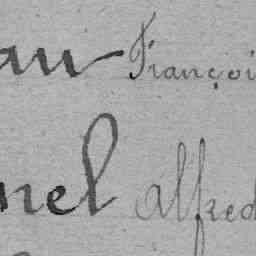 au Françoi
nel Alfred